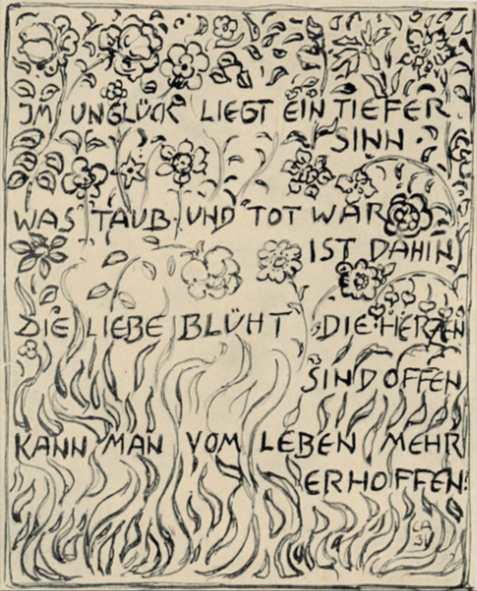 IM UNGLÜCK LIEGT EIN TIEFER
SINN.
WAS TAUB UND TOT WAR
IST DAHIN
DIE LIEBE BLÜHT DIE HERZEN
SIND OFFEN
KANN MAN VOM LEBEN MEHR
ERHOFFEN!